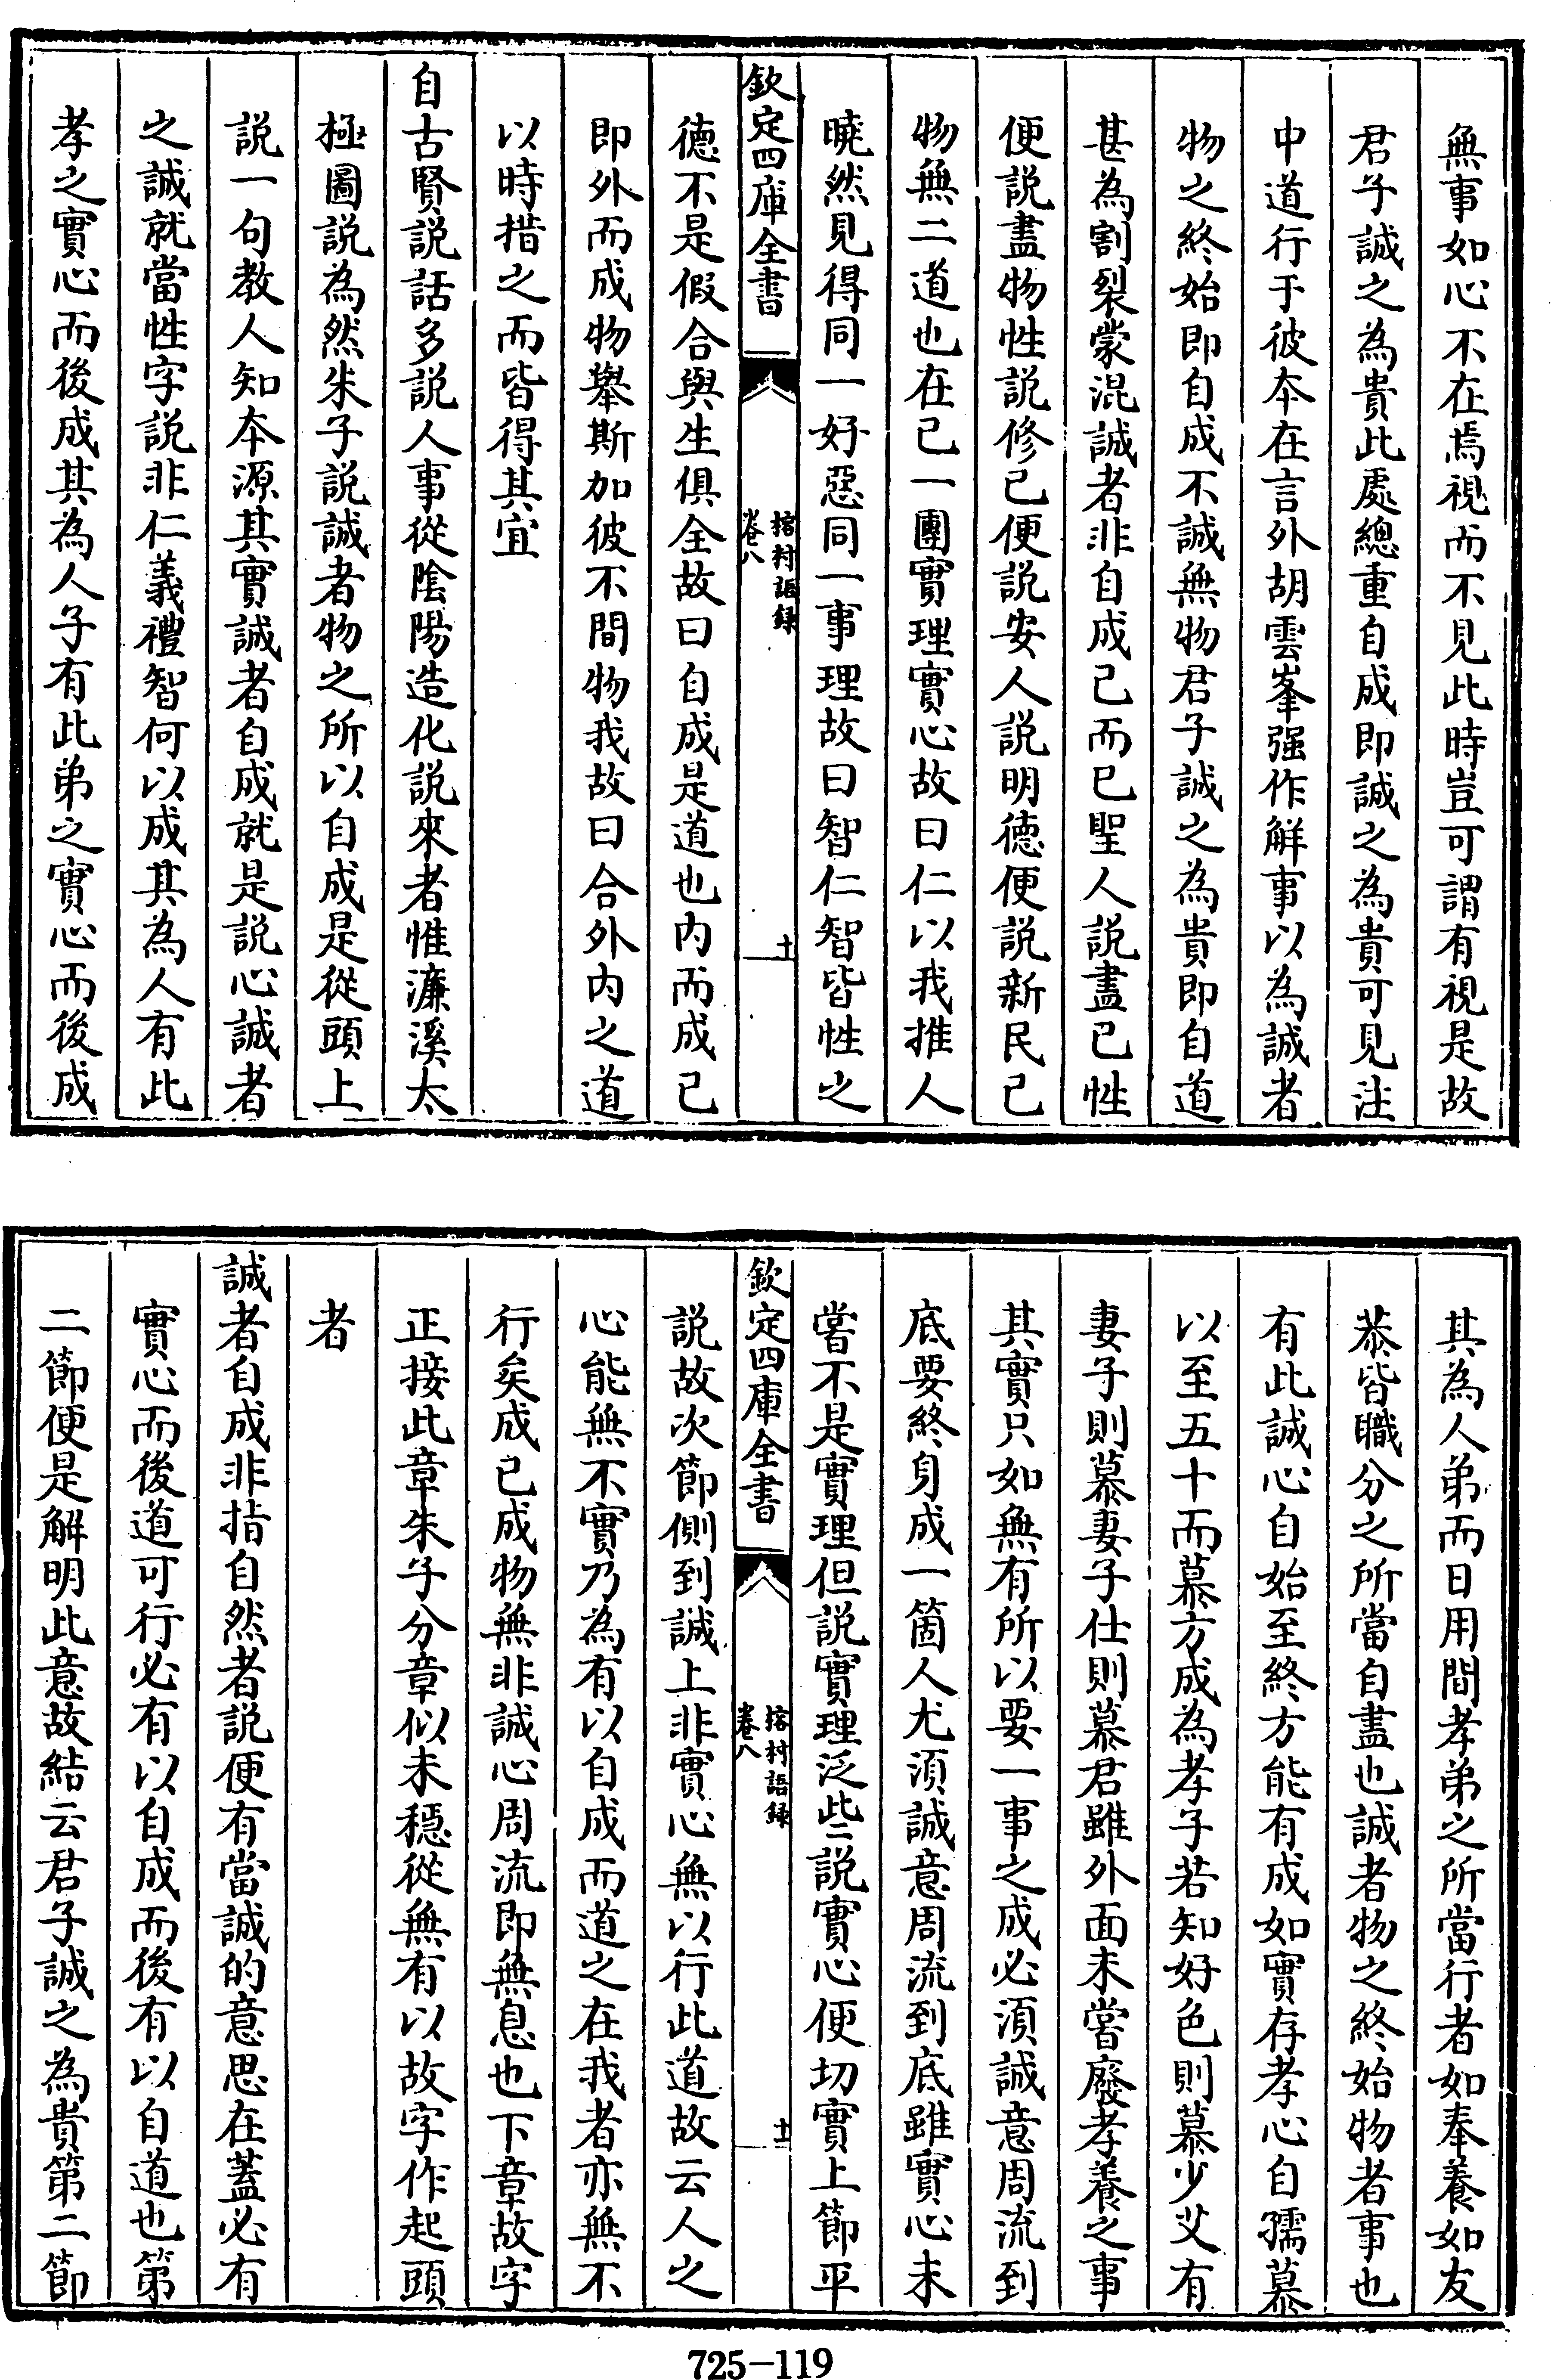 無事如心不在焉視而不見此時豈可謂有視是故
君子誠之為貴此處總重自成即誠之為貴可見注
中道行于彼本在言外胡雲峯强作解事以為誠者
物之終始即自成不誠無物君子誠之為貴即自道
甚為割裂蒙混誠者非自成己而已聖人説盡己性
便説盡物性説修己便説安人説明德便説新民己
物無二道也在己一團實理實心故曰仁以我推人
曉然見得同一好惡同一事理故曰智仁智皆性之
欽定四庫全書
榕村語録
卷八
十一
德不是假合與生俱全故曰自成是道也内而成己
即外而成物舉斯加彼不間物我故曰合外内之道
以時措之而皆得其宜
自古賢説話多説人事從陰陽造化説來者惟濂溪太
極圖説為然朱子説誠者物之所以自成是從頭上
説一句教人知本源其實誠者自成就是説心誠者
之誠就當性字説非仁義禮智何以成其為人有此
孝之實心而後成其為人子有此弟之實心而後成
其為人弟而日用間孝弟之所當行者如奉養如友
恭皆職分之所當自盡也誠者物之終始物者事也
有此誠心自始至終方能有成如實存孝心自孺慕
以至五十而慕方成為孝子若知好色則慕少艾有
妻子則慕妻子仕則慕君雖外面未嘗廢孝養之事
其實只如無有所以要一事之成必須誠意周流到
底要終身成一箇人尤須誠意周流到底雖實心未
嘗不是實理但説實理泛些説實心便切實上節平
欽定四庫全書
榕村語録
卷八
十二
説故次節側到誠上非實心無以行此道故云人之
心能無不實乃為有以自成而道之在我者亦無不
行矣成己成物無非誠心周流即無息也下章故字
正接此章朱子分章似未穩從無有以故字作起頭
者
誠者自成非指自然者説便有當誠的意思在蓋必有
實心而後道可行必有以自成而後有以自道也第
二節便是解明此意故結云君子誠之為貴第二節
725-119